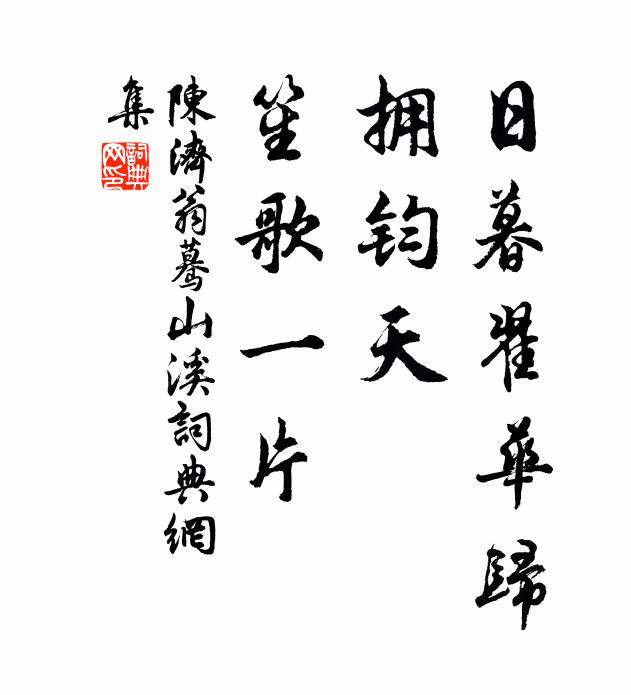 日暮翠華歸
拥钧天
笙歌一片
陳濟翁驀山溪詞典網
集
詞典
网印